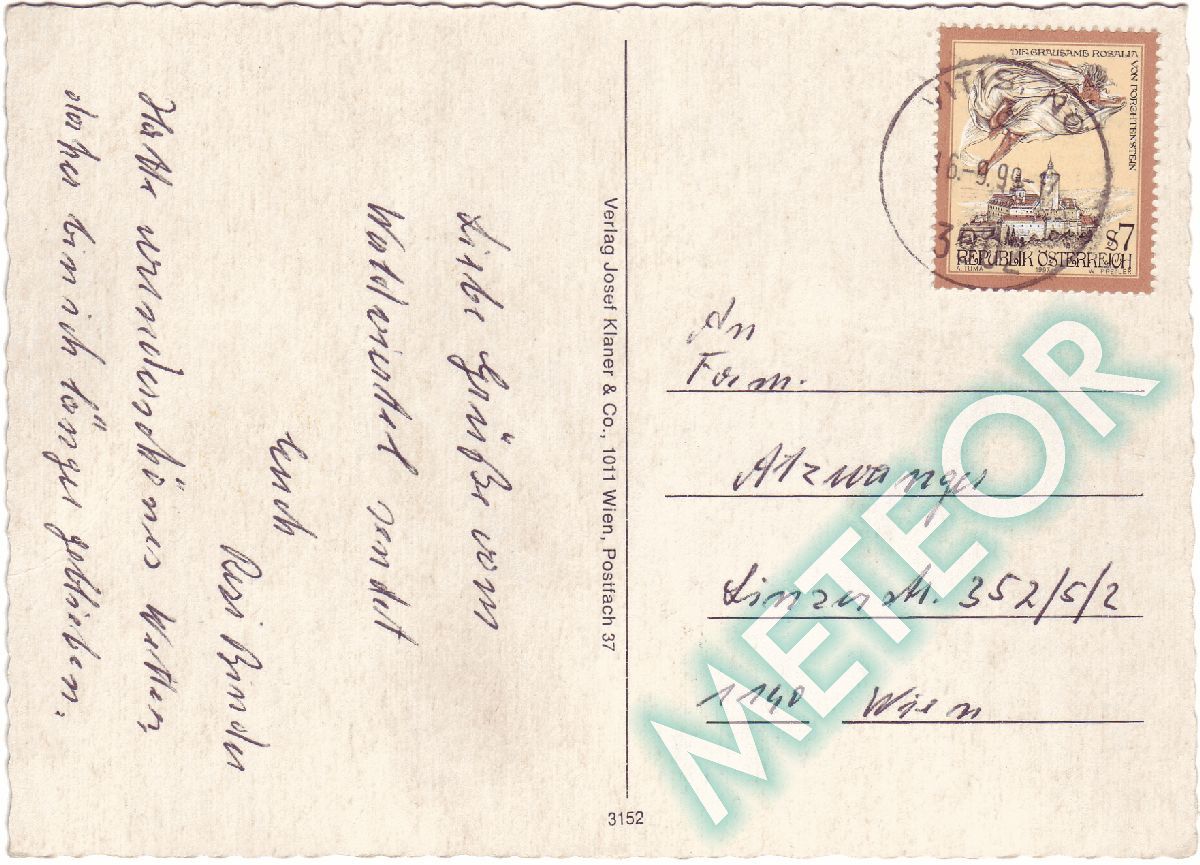 Liebe Grüße vom
Waldviertel sendet
Euch
Resi Binder
Hatte wunderschönes Wetter,
daher bin ich länger geblieben.
Verlag Josef Klaner & Co., 1011 Wien, Postfach 37
3152
DIE GRAUSAME ROSALIA
VON FORCHTENSTEIN
S7
REPUBLIK ÖSTERREICH
A. TUMA 1997 W. PFEILER
VITIS NÖ
16.-9.99
An
Fam.
Atzwanger
Linzerstr. 352/5/2
1140 Wien
METEOR